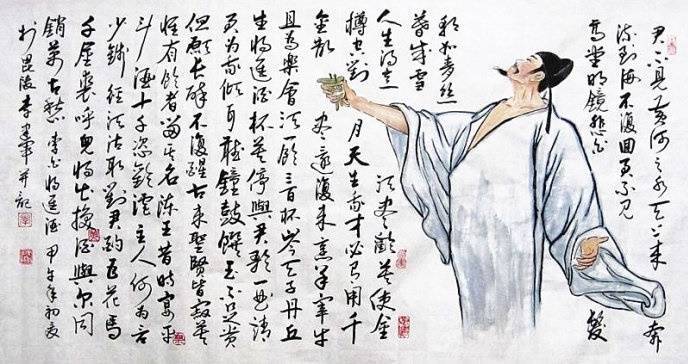 君不見黄河之水天上来奔
流到海不復回君不見
高堂明鏡悲白髮
朝如青丝
暮成雪
人生得意須尽歡莫使金
樽空對月天生我才必有用千
金散尽還復来烹羊宰牛
且為樂會須一飲三百杯岑夫子丹丘
生将進酒杯莫停與君歌一曲請
君为我傾耳聽鐘鼓饌玉不足贵
但願长醉不復醒古来聖賢皆寂莫
惟有飲者留其名陈王昔時宴平
斗酒十千恣歡谑主人何为言
少錢径須沽取對君酌五花馬
千金裘呼児将出換酒與尔同
銷萬古愁李白将進酒甲午年初夏
於毘陵李軍并記